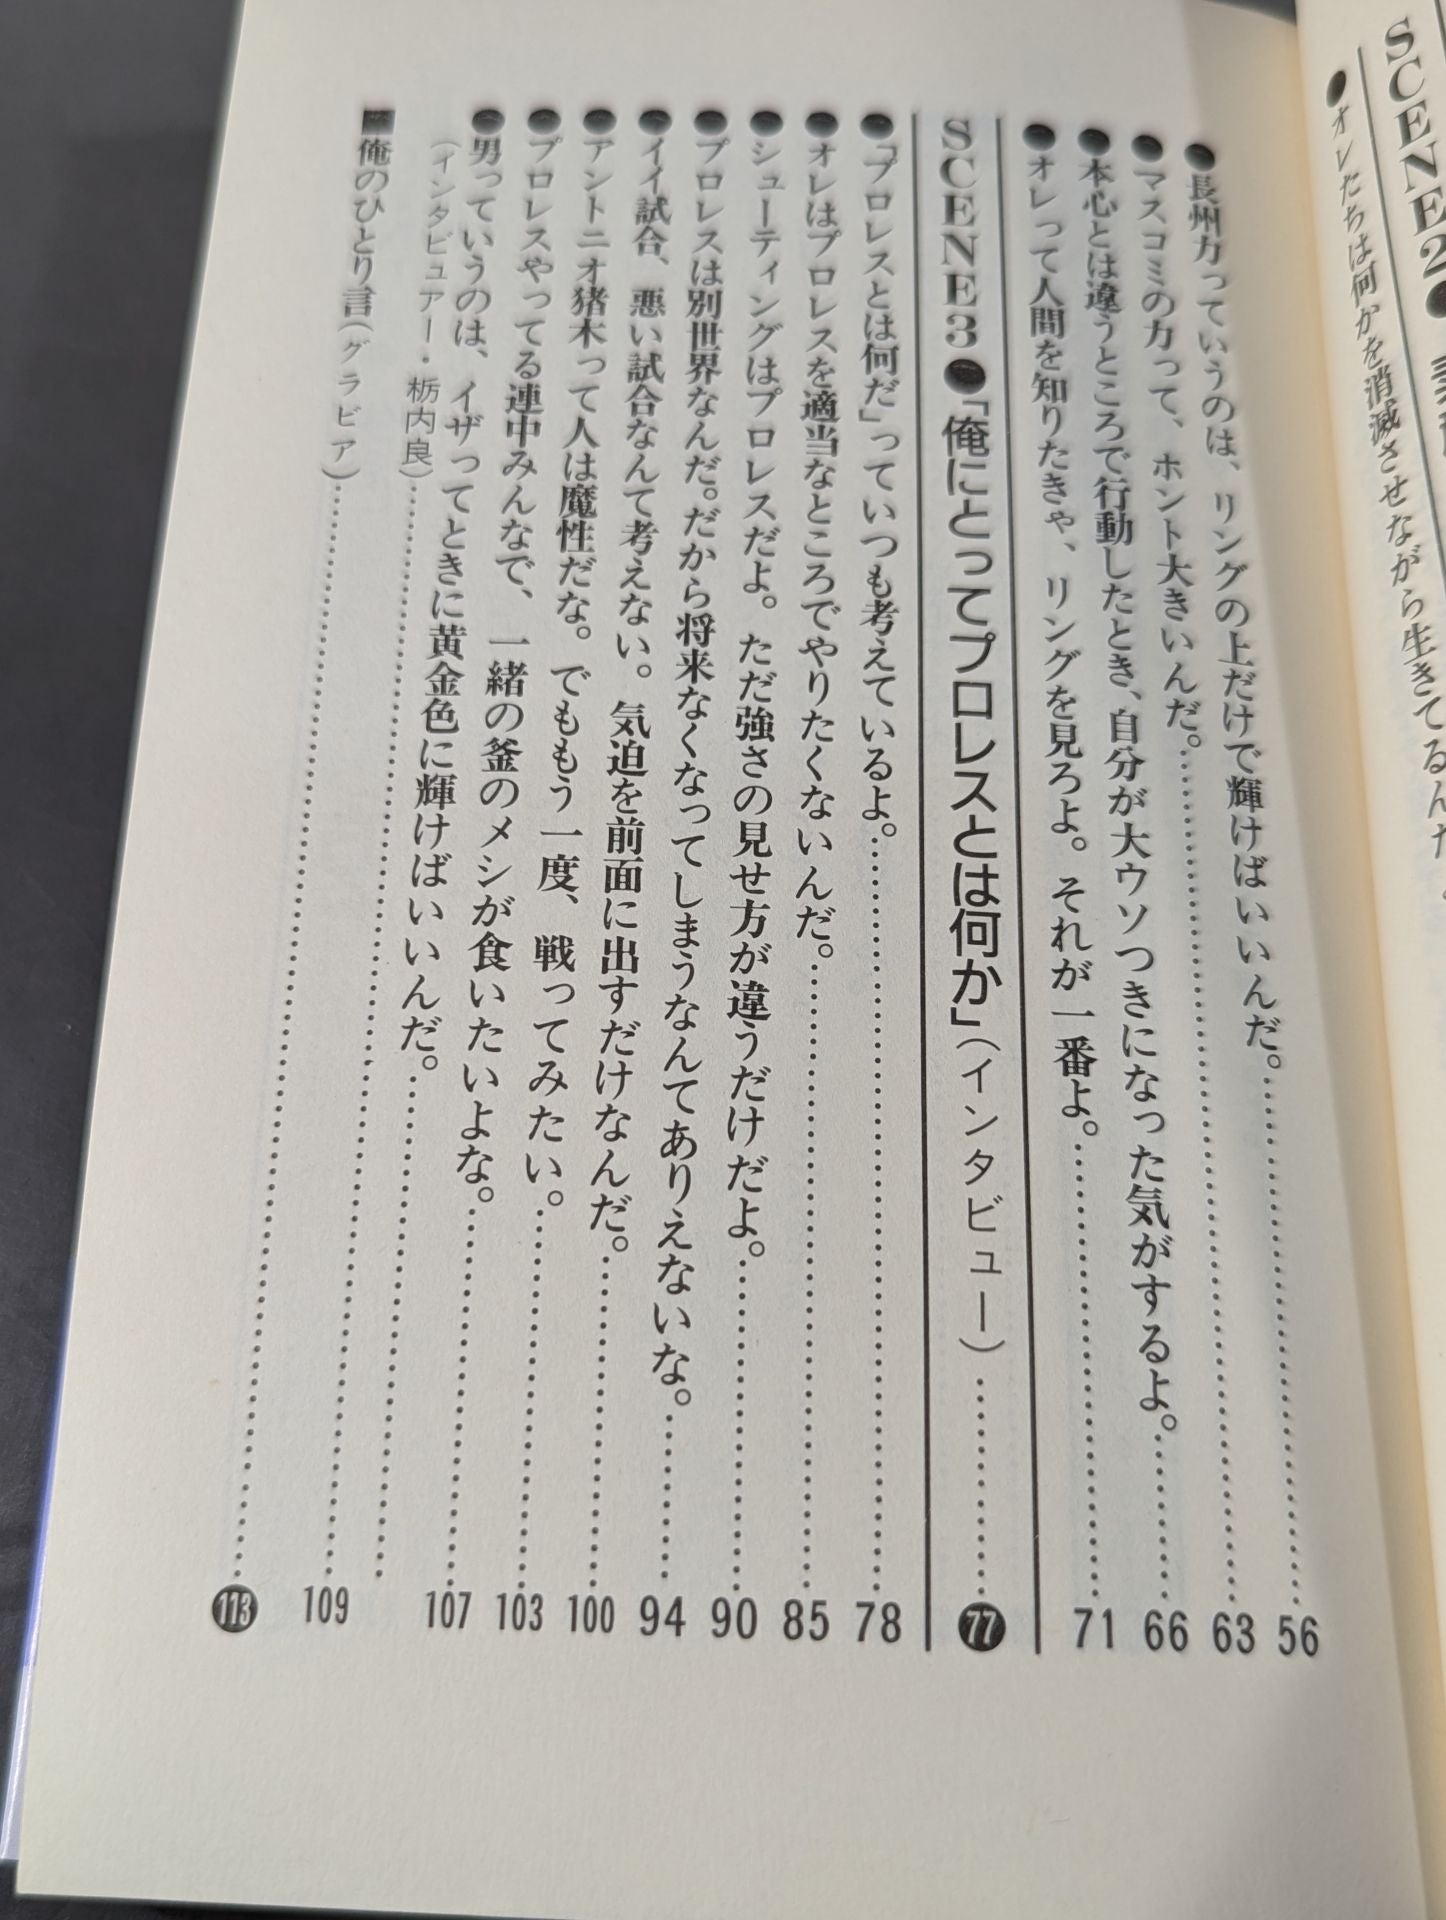 SCENE2●
●オレたちは何かを消滅させながら生きてるんだ
●長州力っていうのは、リングの上だけで輝けばいいんだ。……56
●マスコミの力って、ホント大きいんだ。……63
●本心とは違うところで行動したとき、自分が大ウソつきになった気がするよ。……66
●オレって人間を知りたきゃ、リングを見ろよ。それが一番よ。……71
SCENE3●「俺にとってプロレスとは何か」(インタビュー)……77
●「プロレスとは何だ」っていつも考えているよ。……78
●オレはプロレスを適当なところでやりたくないんだ。……85
●シューティングはプロレスだよ。ただ強さの見せ方が違うだけだよ。……90
●プロレスは別世界なんだ。だから将来なくなってしまうなんてありえないな。……94
●イイ試合、悪い試合なんて考えない。気迫を前面に出すだけなんだ。……100
●アントニオ猪木って人は魔性だな。でももう一度、戦ってみたい。……103
●プロレスやってる連中みんなで、一緒の釜のメシが食いたいよな。……107
●男っていうのは、イザってときに黄金色に輝けばいいんだ。……109
(インタビュアー・栃内良)……
■俺のひとり言(グラビア)……113